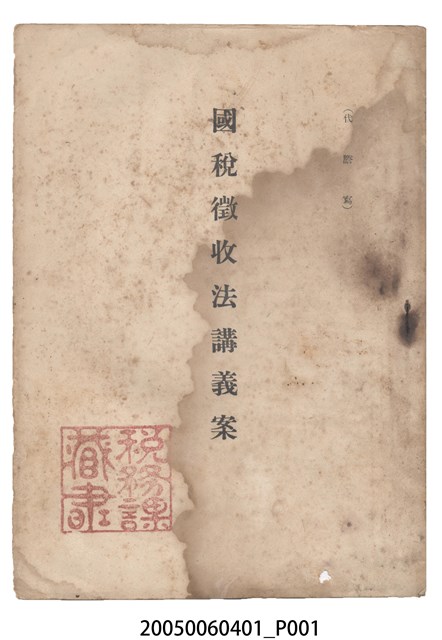 (代謄寫)
國稅徵收法講義案
稅務課
藏書
20050060401_P001